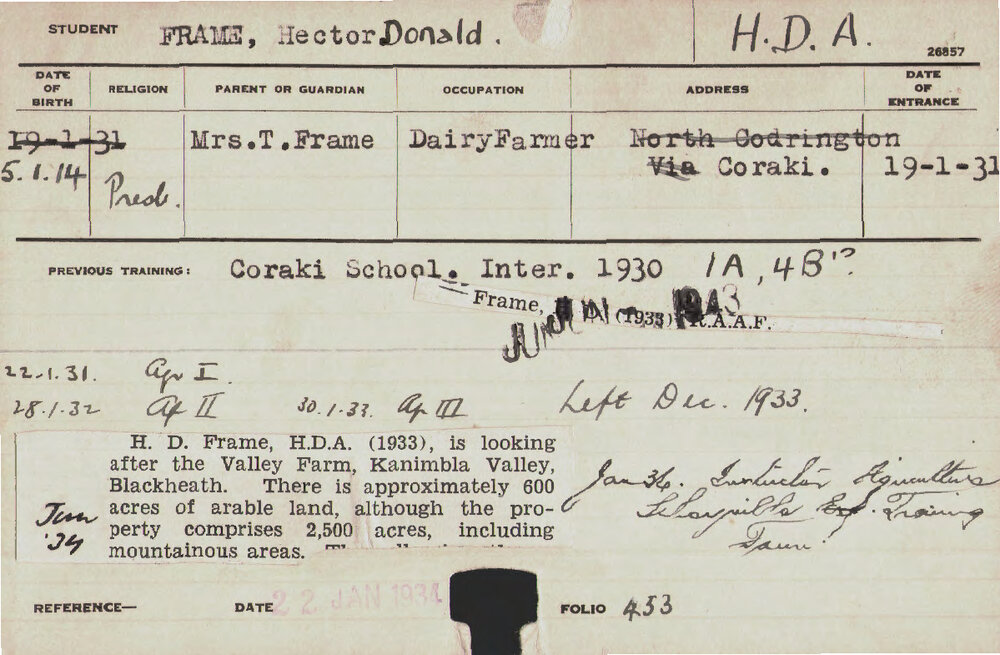 STUDENT FRAME, Hector Donald. H. D. A. 26857
DATE OF BIRTH RELIGION PARENT OR GUARDIAN OCCUPATION ADDRESS DATE OF ENTRANCE
19-1-31 Mrs.T.Frame DairyFarmer North Codrington
5.1.14 Presb. Via Coraki. 19-1-31
PREVIOUS TRAINING: Coraki School. Inter. 1930 1A, 4B's
Frame, H. D. (1933) R.A.A.F.
JUN 1943
22.1.31. Ag I.
28.1.32 Ag II 30.1.33. Ag III Left Dec. 1933.
H. D. Frame, H.D.A. (1933), is looking
after the Valley Farm, Kanimbla Valley,
Blackheath. There is approximately 600
acres of arable land, although the pro-
perty comprises 2,500 acres, including
mountainous areas.
Jun '34
Jan 36. Instructor Agriculture
Training
Farm.
REFERENCE— DATE 22 JAN 1934 FOLIO 453